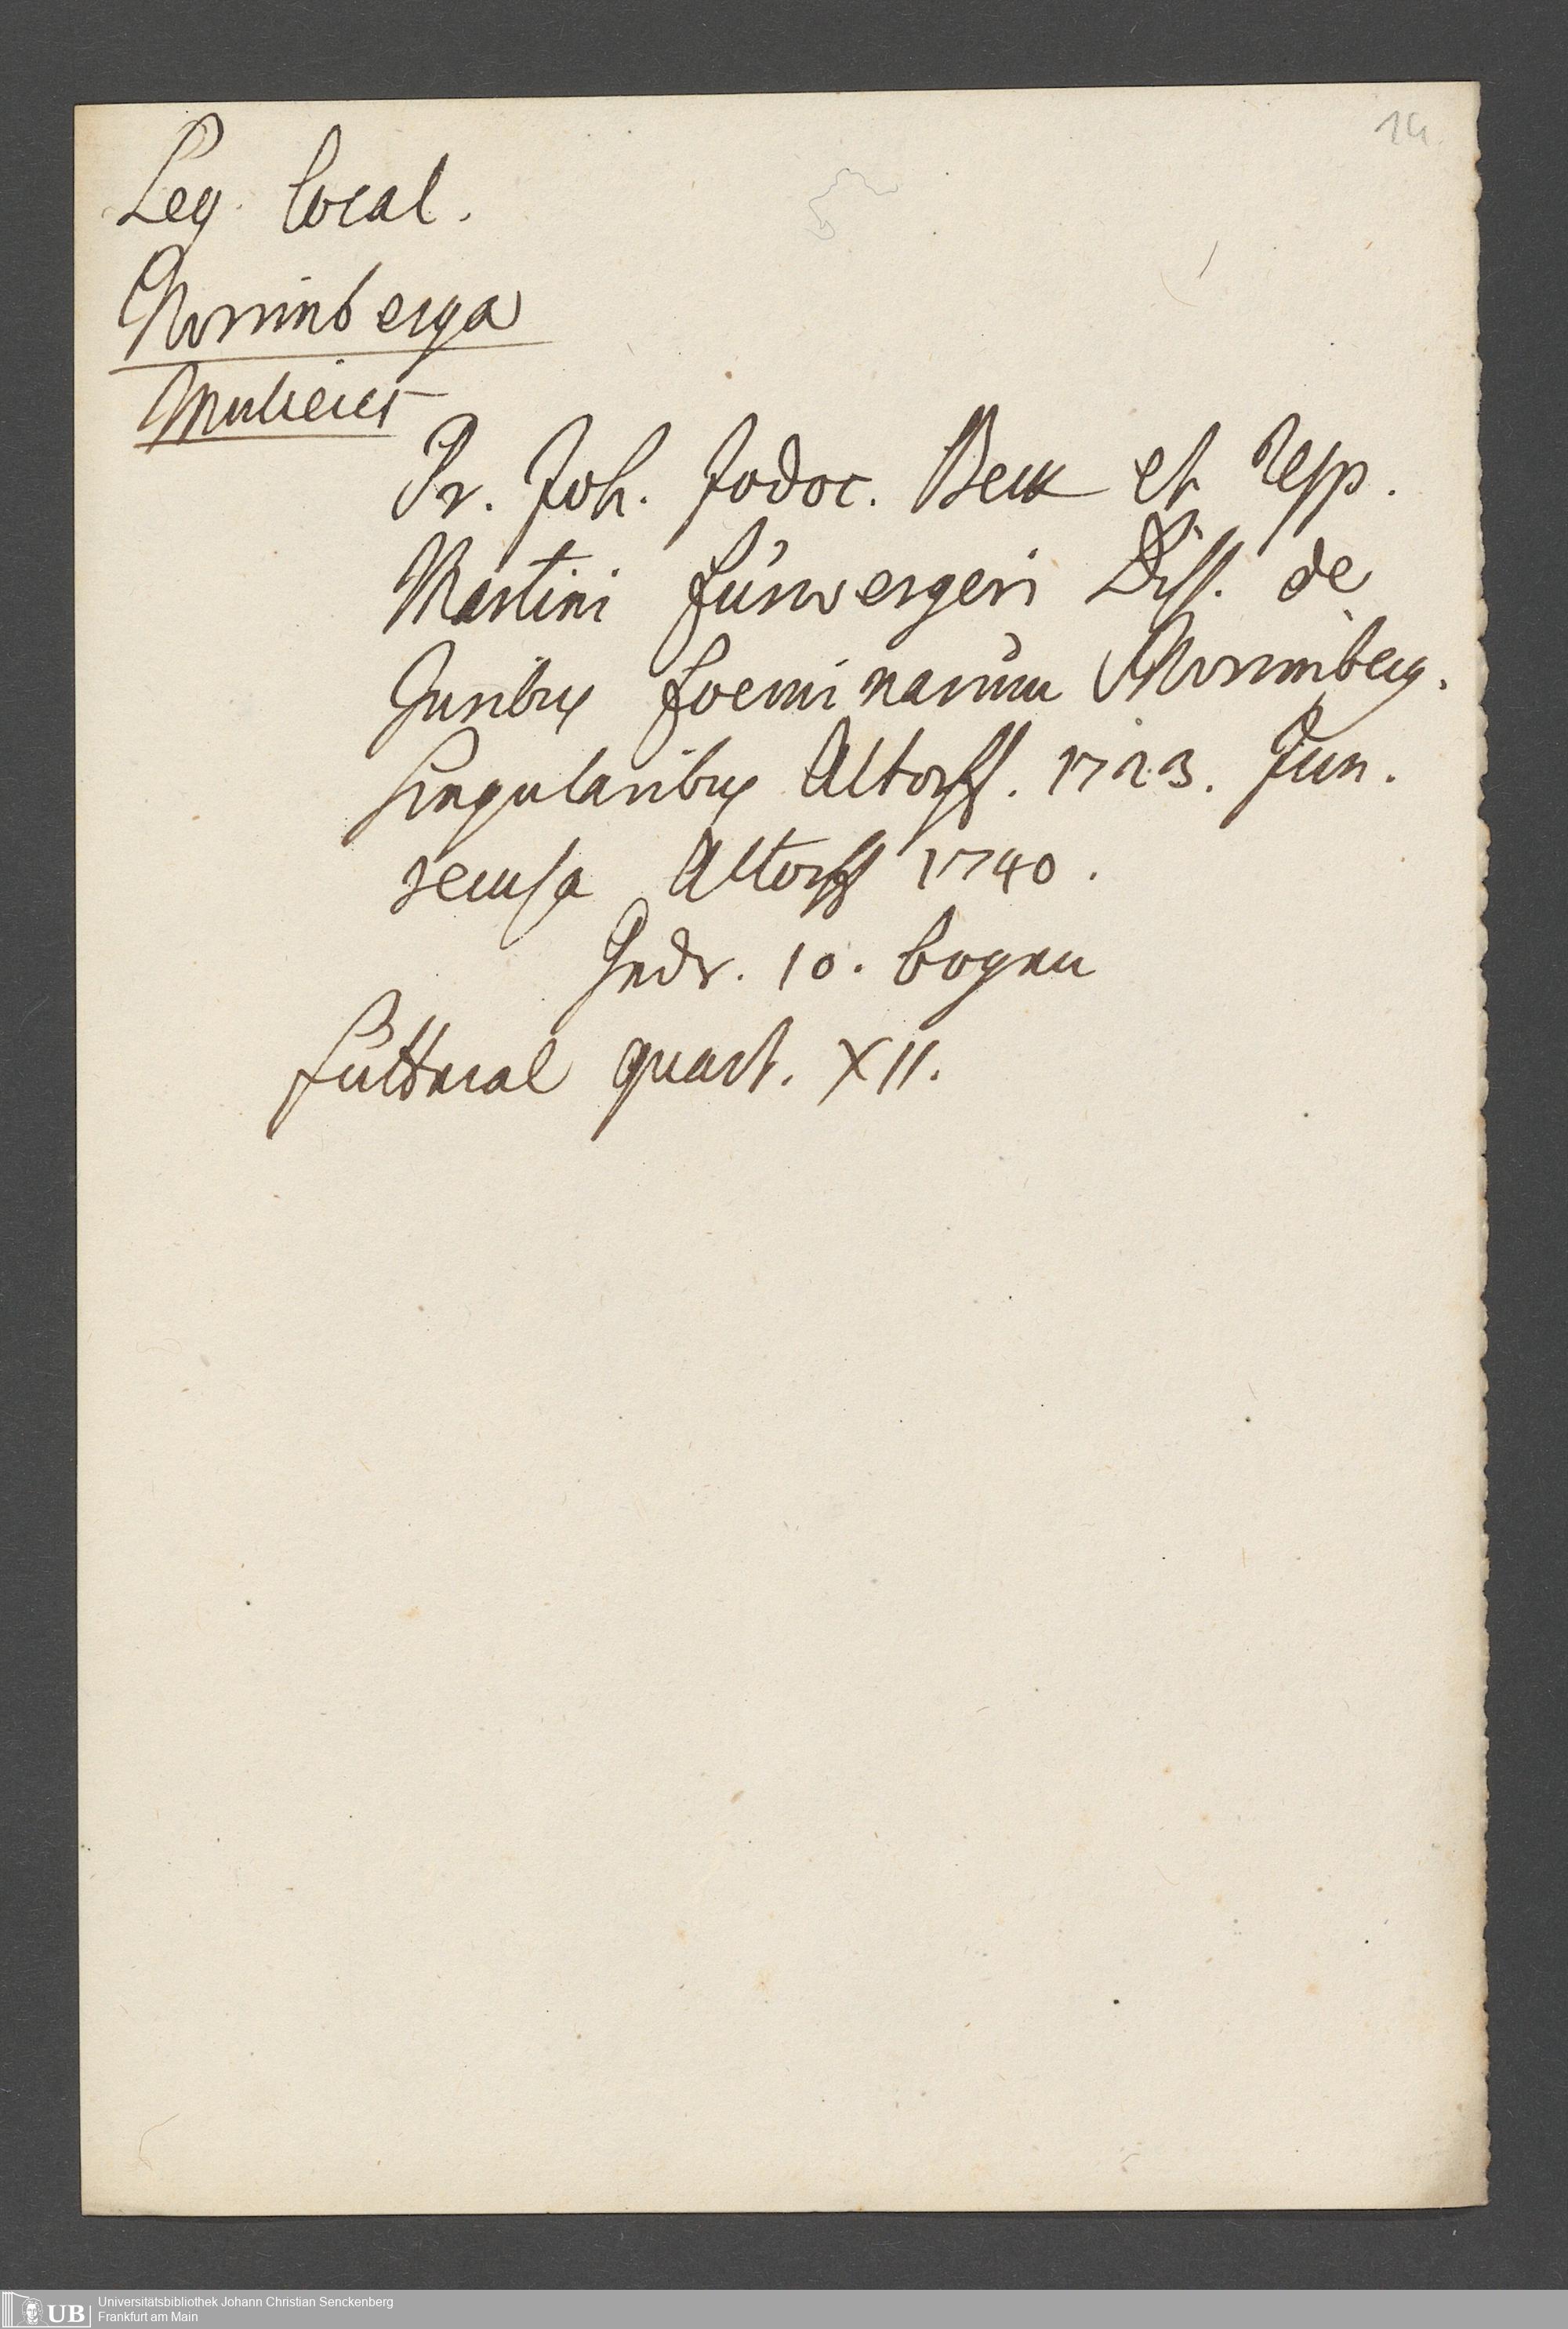 14.
Leg. local.
Norimberga
Mulieres
Pr. Joh. Jodoc. Beck et resp.
Martini Fürwergeri Diss. de
Juribus foeminarum Norimberg.
singularibus Altorff. 1723. Jun.
recusa Altorff 1740.
Gedr. 10. bogen
Futteral quart. XII.
UB
Universitätsbibliothek Johann Christian Senckenberg
Frankfurt am Main